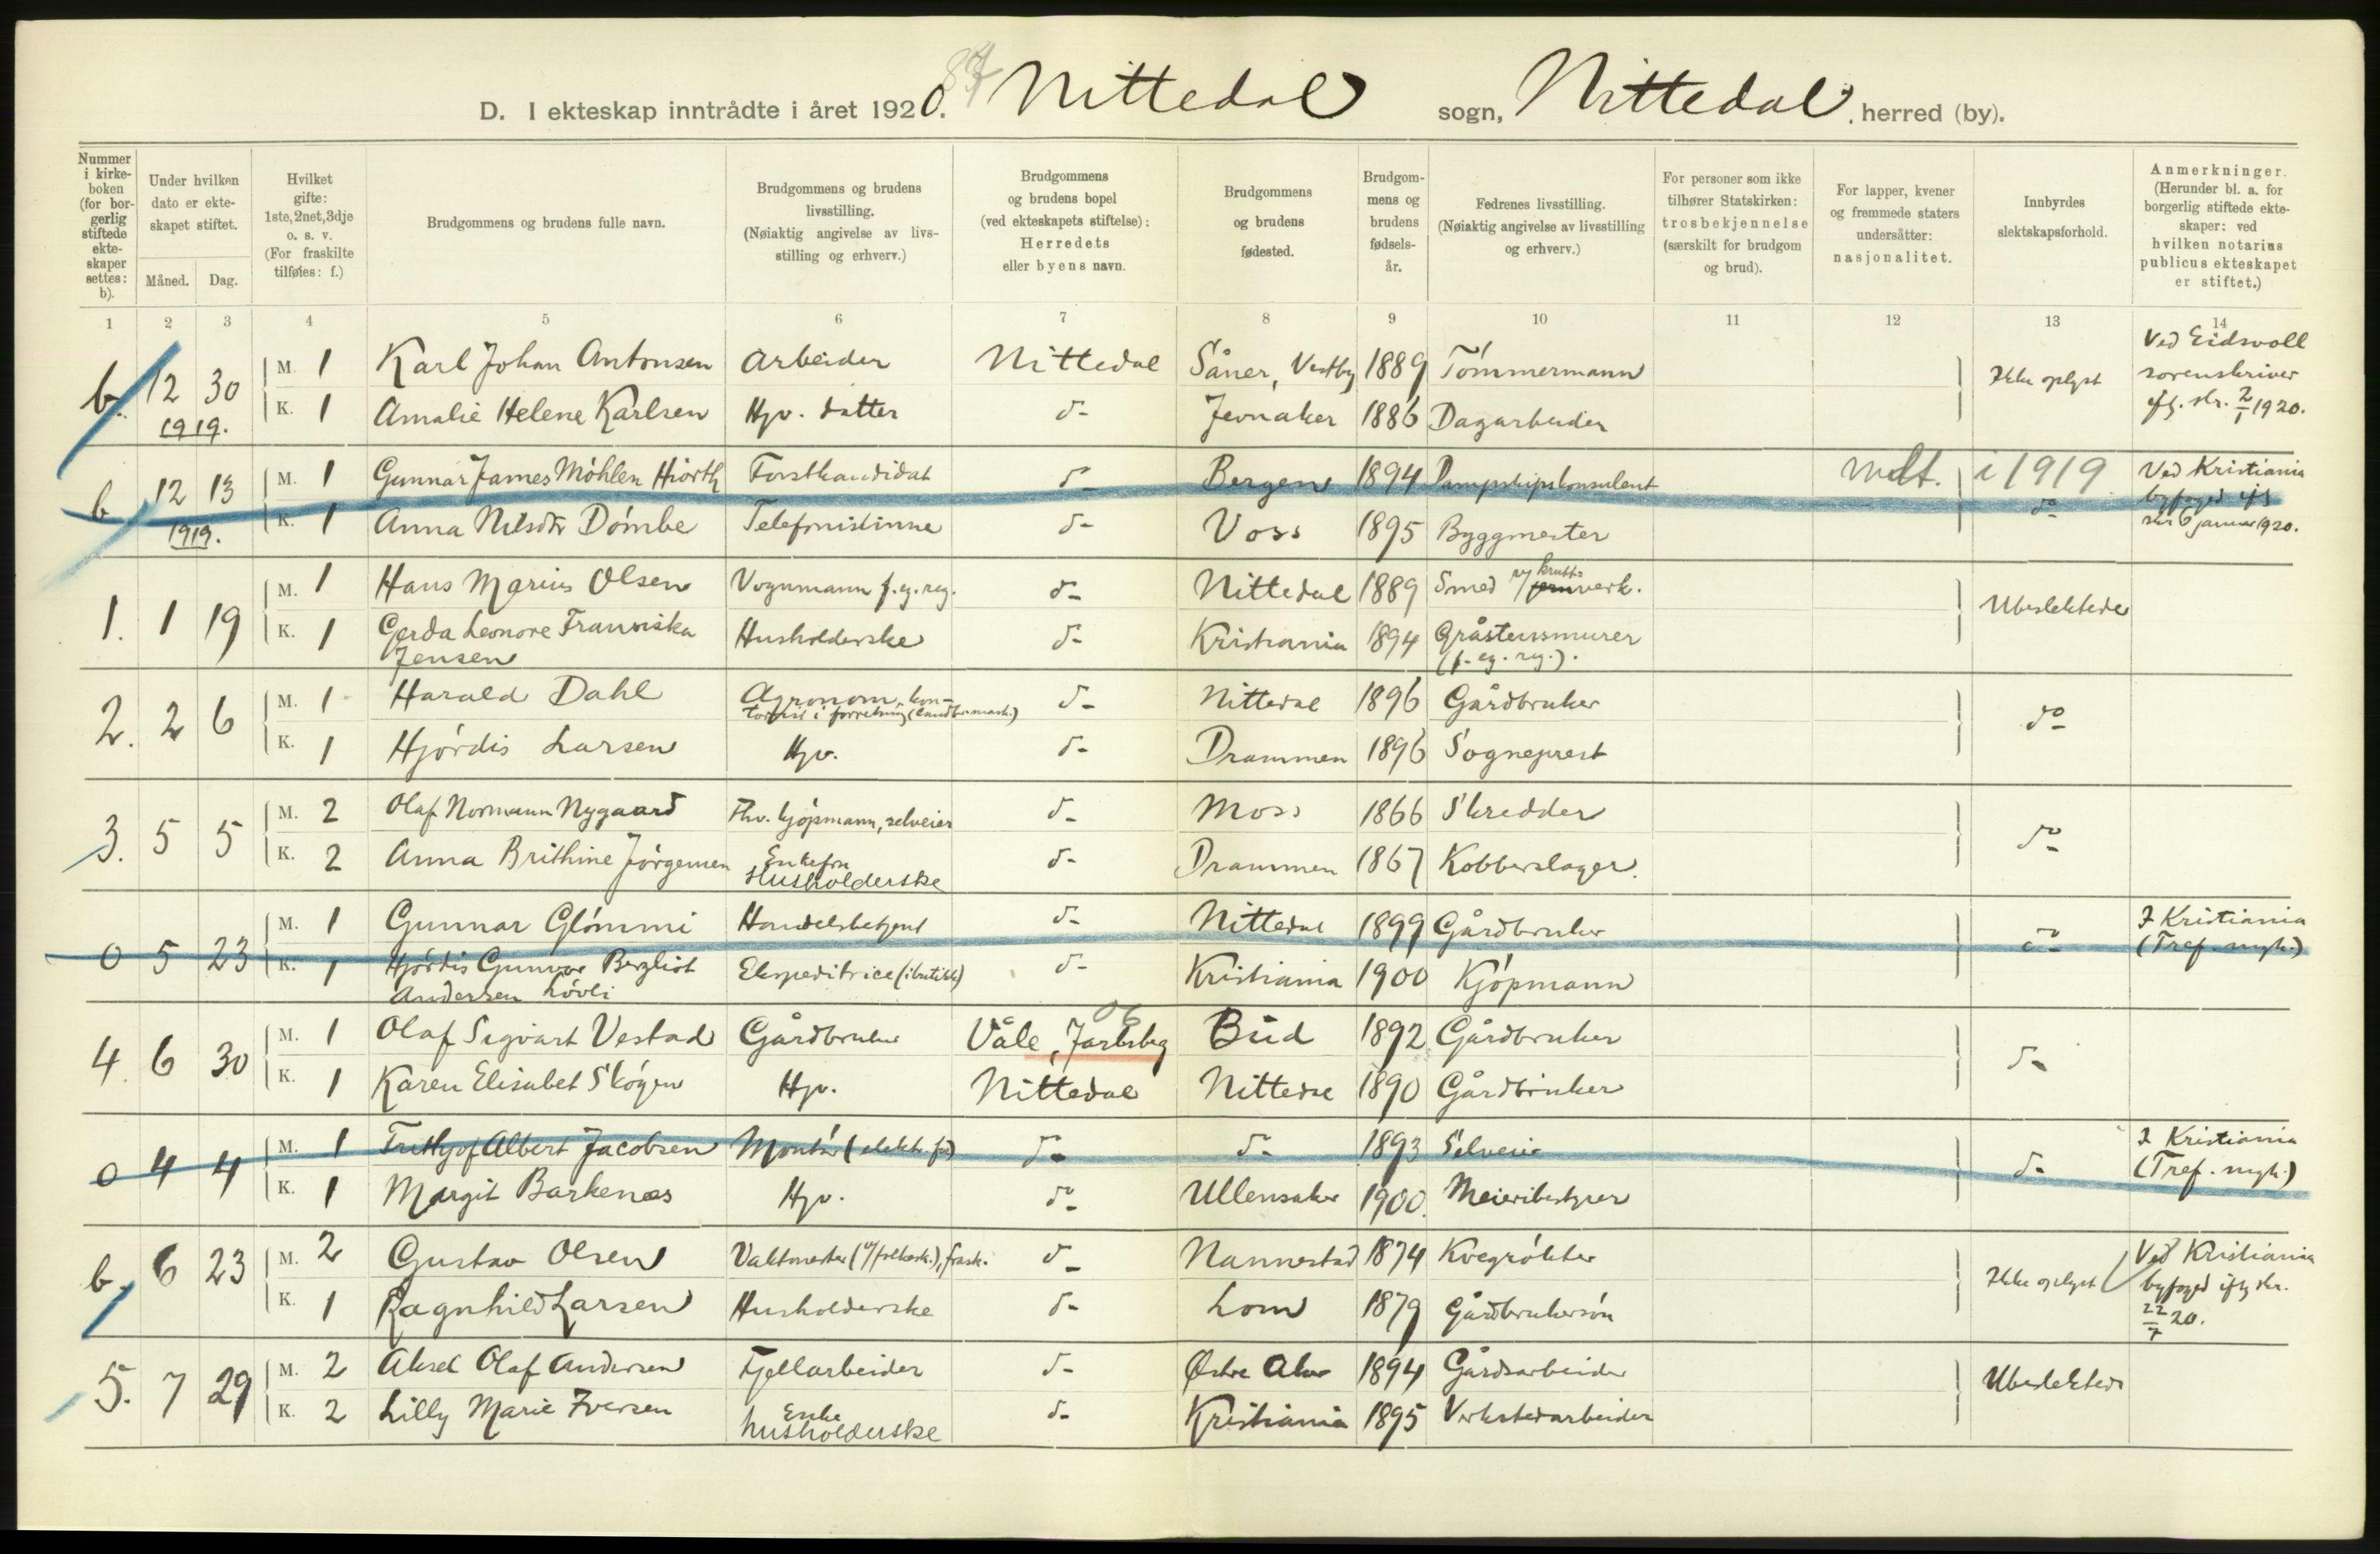 D. I ekteskap inntrådte i året 1920. Nittedal sogn, Nittedal herred (by).
Nummer i kirke- boken (for bor- gerlig stiftede ekte- skaper settes: b).
Under hvilken dato er ekte- skapet stiftet.
Måned. Dag.
Hvilket gifte: 1ste, 2net, 3dje o. s. v. (For fraskilte tilføies: f.)
Brudgommens og brudens fulle navn.
Brudgommens og brudens livsstilling. (Nøiaktig angivelse av livs- stilling og erhverv.)
Brudgommens og brudens bopel (ved ekteskapets stiftelse): Herredets eller byens navn.
Brudgommens og brudens fødested.
Brudgom- mens og brudens fødsels- år.
Fedrenes livsstilling. (Nøiaktig angivelse av livsstilling og erhverv.)
For personer som ikke tilhører Statskirken: trosbekjennelse (særskilt for brudgom og brud).
For lapper, kvener og fremmede staters undersåtter: nasjonalitet.
Innbyrdes slektskapsforhold.
Anmerkninger. (Herunder bl. a. for borgerlig stiftede ekte- skaper: ved hvilken notarius publicus ekteskapet er stiftet.)
1 2 3 4 5 6 7 8 9 10 11 12 13 14
b. 12 30 1919. M. 1 Karl Johan Antonsen Arbeider Nittedal Såner, Vestby 1889 Tömmermann Ikke oplyst Ved Eidsvoll sorenskriver efg. skr. 2/1 1920.
K. 1 Amalie Helene Karlsen Hjv. datter do- Jevnaker 1886 Dagarbeider
b 12 13 1919. M. 1 Gunnar James Möhlen Hiorth Forstkandidat do- Bergen 1894 Dampskipskonsulent medt. i 1919 do- Ved Kristiania byfoged ifg skr 6 januar 1920.
K. 1 Anna Nilsdtr Dömbe Telefonistinne do- Voss 1895 Byggmester
1. 1 19 M. 1 Hans Marius Olsen Vognmann f. eg. reg. do- Nittedal 1889 Smed v/ krutt- jernverk.
K. 1 Gerda Leonore Franciska Jensen Husholderske do- Kristiania 1894 Gråstensmurer (f. eg. reg.). Ubeslektede
2. 2 6 M. 1 Harald Dahl Agronom, kon- torist i forretning (landbr.mask.) do- Nittedal 1896 Gårdbruker do-
K. 1 Hjördis Larsen Hjv. do- Drammen 1896 Sogneprest
3. 5 5 M. 2 Olaf Normann Nygaard Fhv. kjöpmann, selveier do- Moss 1866 Skredder do-
K. 2 Anna Brithine Jörgensen Enkefru Husholderske do- Drammen 1867 Kobberslager.
0 5 23 M. 1 Gunnar Glömmi Handelsbetjent do- Nittedal 1899 Gårdbruker do- I Kristiania (Tref. mgh.)
K. 1 Hjördis Gunvor Bergliot Andersen Lövli Ekspeditrice (i butikk) do- Kristiania 1900 Kjöpmann
4. 6 30 M. 1 Olaf Sigvart Vestad Gårdbruker Våle, Jarlsberg Bud 1892 Gårdbruker do-
K. 1 Karen Elisabet Skögen Hjv. Nittedal Nittedal 1890 Gårdbruker
0 4 4 M. 1 Frithjof Albert Jacobsen Montör (elektr. fo) do- do- 1893 Selveier do- I Kristiania (Tref. mgh.)
K. 1 Margit Barkenæs Hjv. do- Ullensaker 1900. Meieribestyrer
b. 6 23 M. 2 Gustav Olsen Vaktmester (v/ folkesk.), frask. do- Nannestad 1874 Kvegrökter Ikke oplyst Ved Kristiania byfoged ifg skr. 22/7 20.
K. 1 Ragnhild Larsen Husholderske do- Lom 1879 Gårdbrukersön
5. 7 29 M. 2 Aksel Olaf Andersen Fjellarbeider do- Østre Aker 1894 Gårdsarbeider Ubeslektede
K. 2 Lilly Marie Iversen Enke husholderske do- Kristiania 1895 Verkstedarbeider